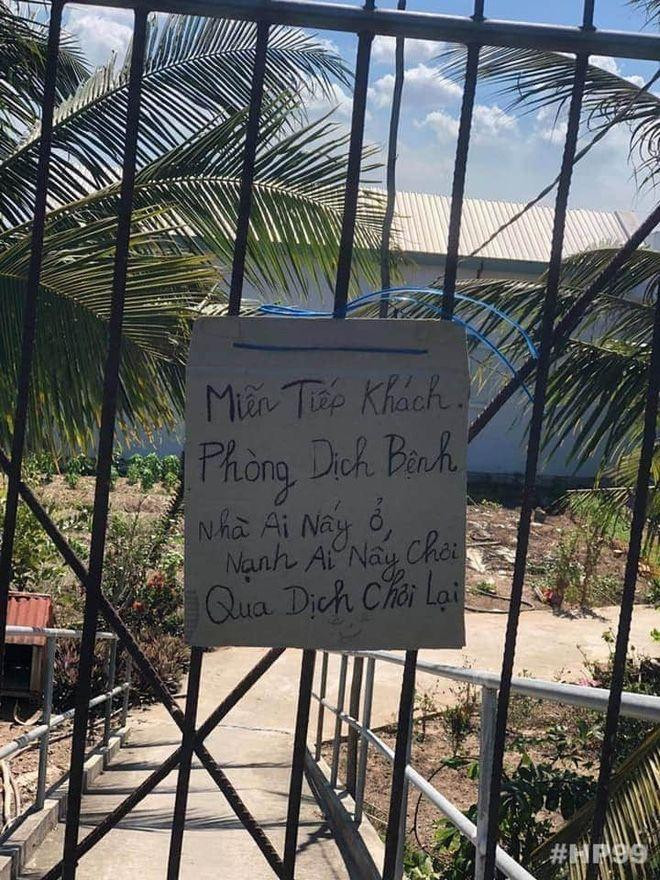 Miễn Tiếp Khách.
Phòng Dịch Bệnh
Nhà Ai Nấy Ở,
Nạnh Ai Nấy Chơi
Qua Dịch Chơi Lại
#HP99